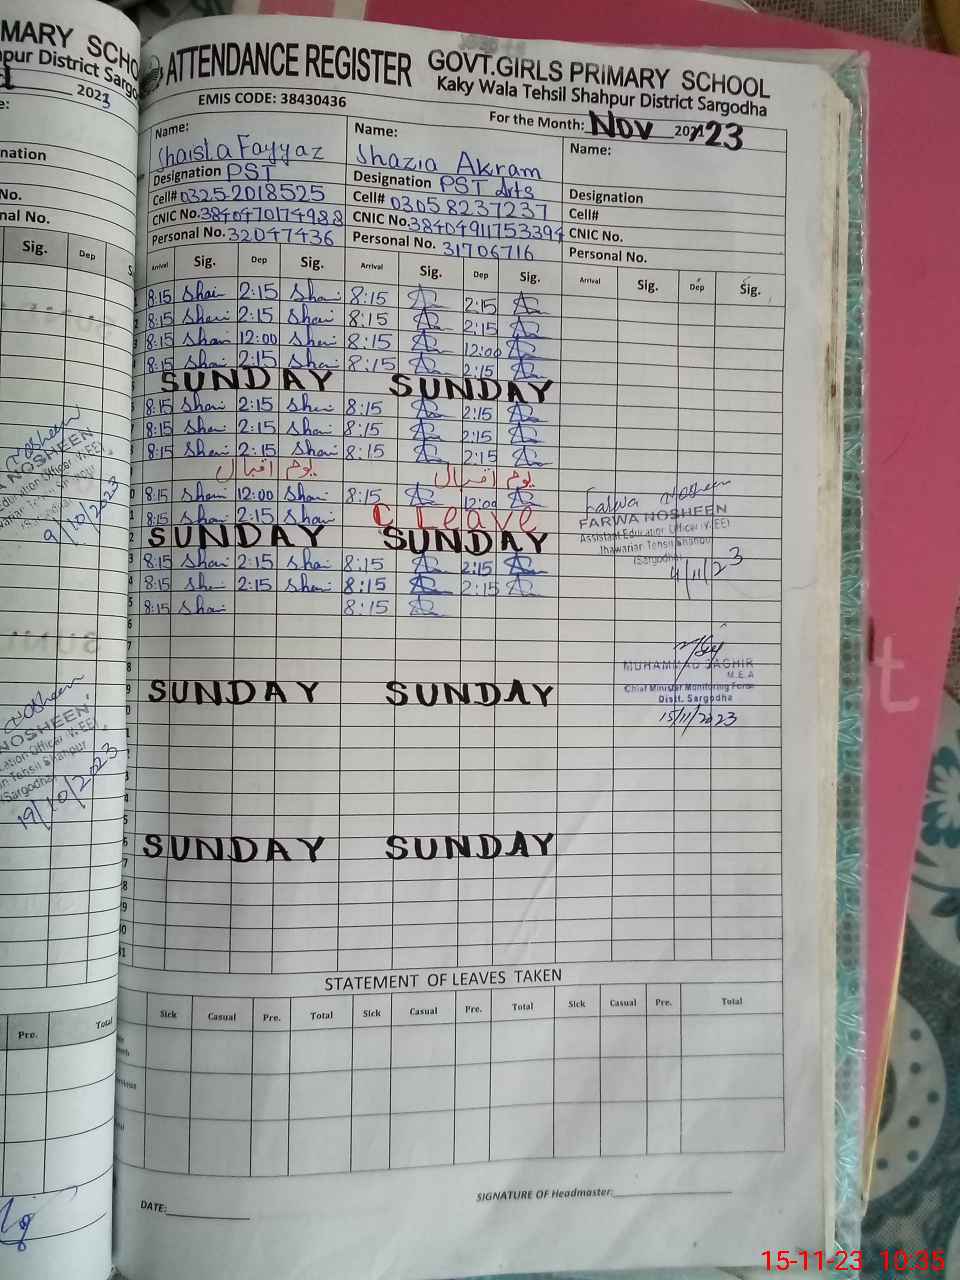 ATTENDANCE REGISTER GOVT.GIRLS PRIMARY SCHOOL
Kaky Wala Tehsil Shahpur District Sargodha
EMIS CODE: 38430436
For the Month: Nov 2023
Name: Name: Name:
Shaista Fayyaz Shazia Akram
Designation PST Designation PST Arts Designation
Cell# 0325-2018525 Cell# 03058237237 Cell#
CNIC No. 3840470174988 CNIC No. 38404911753394 CNIC No.
Personal No. 32047436 Personal No. 31706716 Personal No.
Arrival Sig. Dep Sig. Arrival Sig. Dep Sig. Arrival Sig. Dep Sig.
8:15 Shai 2:15 Shai 8:15 2:15
8:15 Shai 2:15 Shai 8:15 2:15
8:15 Shai 12:00 Shai 8:15 12:00
8:15 Shai 2:15 Shai 8:15 2:15
SUNDAY SUNDAY
8:15 Shai 2:15 Shai 8:15 2:15
8:15 Shai 2:15 Shai 8:15 2:15
8:15 Shai 2:15 Shai 8:15 2:15
یوم اقبال یوم اقبال
8:15 Shai 12:00 Shai 8:15 12:00
8:15 Shai 2:15 Shai C Leave
SUNDAY SUNDAY
8:15 Shai 2:15 Shai 8:15 2:15
8:15 Shai 2:15 Shai 8:15 2:15
8:15 Shai 8:15
SUNDAY SUNDAY
SUNDAY SUNDAY
Farwa Nosheen
FARWA NOSHEEN
Assistant Education Officer (W.EE)
Jhawarian Tehsil Shahpur
(Sargodha)
9/11/23
MUHAMMAD SAGHIR
M.E.A
Chief Minister Monitoring Force
Distt. Sargodha
15/11/2023
STATEMENT OF LEAVES TAKEN
Sick Casual Pre. Total Sick Casual Pre. Total Sick Casual Pre. Total
DATE:
SIGNATURE OF Headmaster:
MARY SCHO
pur District Sargo
2023
nation
No.
nal No.
Sig. Dep
NOSHEEN
9/10/2023
NOSHEEN
(Sargodha)
19/10/2023
Pre. Total
15-11-23 10:35